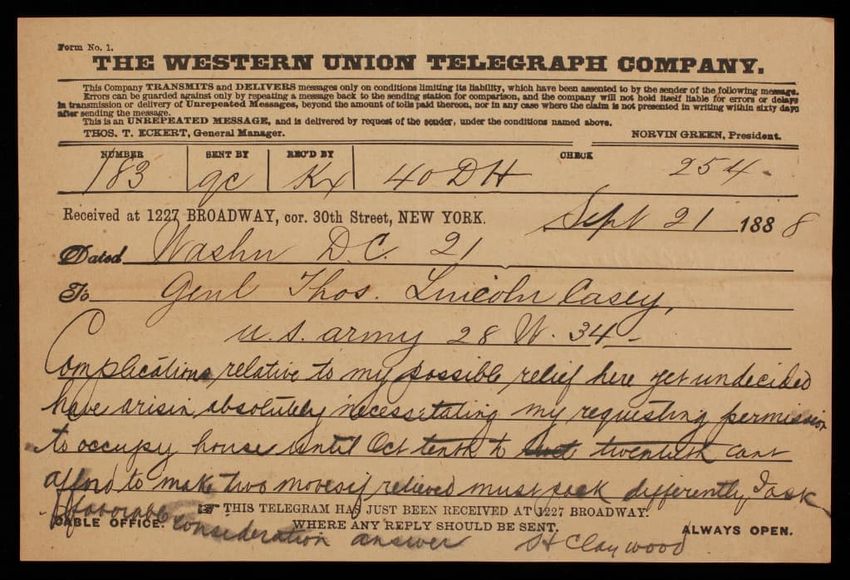 Form No. 1.
THE WESTERN UNION TELEGRAPH COMPANY.
This Company TRANSMITS and DELIVERS messages only on conditions limiting its liability, which have been assented to by the sender of the following message.
Errors can be guarded against only by repeating a message back to the sending station for comparison, and the company will not hold itself liable for errors or delays
in transmission or delivery of Unrepeated Messages, beyond the amount of tolls paid thereon, nor in any case where the claim is not presented in writing within sixty days
after sending the message.
This is an UNREPEATED MESSAGE, and is delivered by request of the sender, under the conditions named above.
THOS. T. ECKERT, General Manager. NORVIN GREEN, President.
NUMBER SENT BY REC'D BY CHECK
183 gc Kx 40 DH 254
Received at 1227 BROADWAY, cor. 30th Street, NEW YORK. Sept 21 1888
Dated Washn D.C. 21
To Genl Thos. Lincoln Casey,
U.S. army 28 W. 34 -
Complications relative to my possible relief here yet undecided
have arisin absolutely necessitating my requesting permission
to occupy house until Oct tenth to twentieth cant
afford to make two moves if relieved must pack differently I ask
favorable
☞ THIS TELEGRAM HAS JUST BEEN RECEIVED AT 1227 BROADWAY.
CABLE OFFICE. WHERE ANY REPLY SHOULD BE SENT. ALWAYS OPEN.
consideration answer H Clay wood